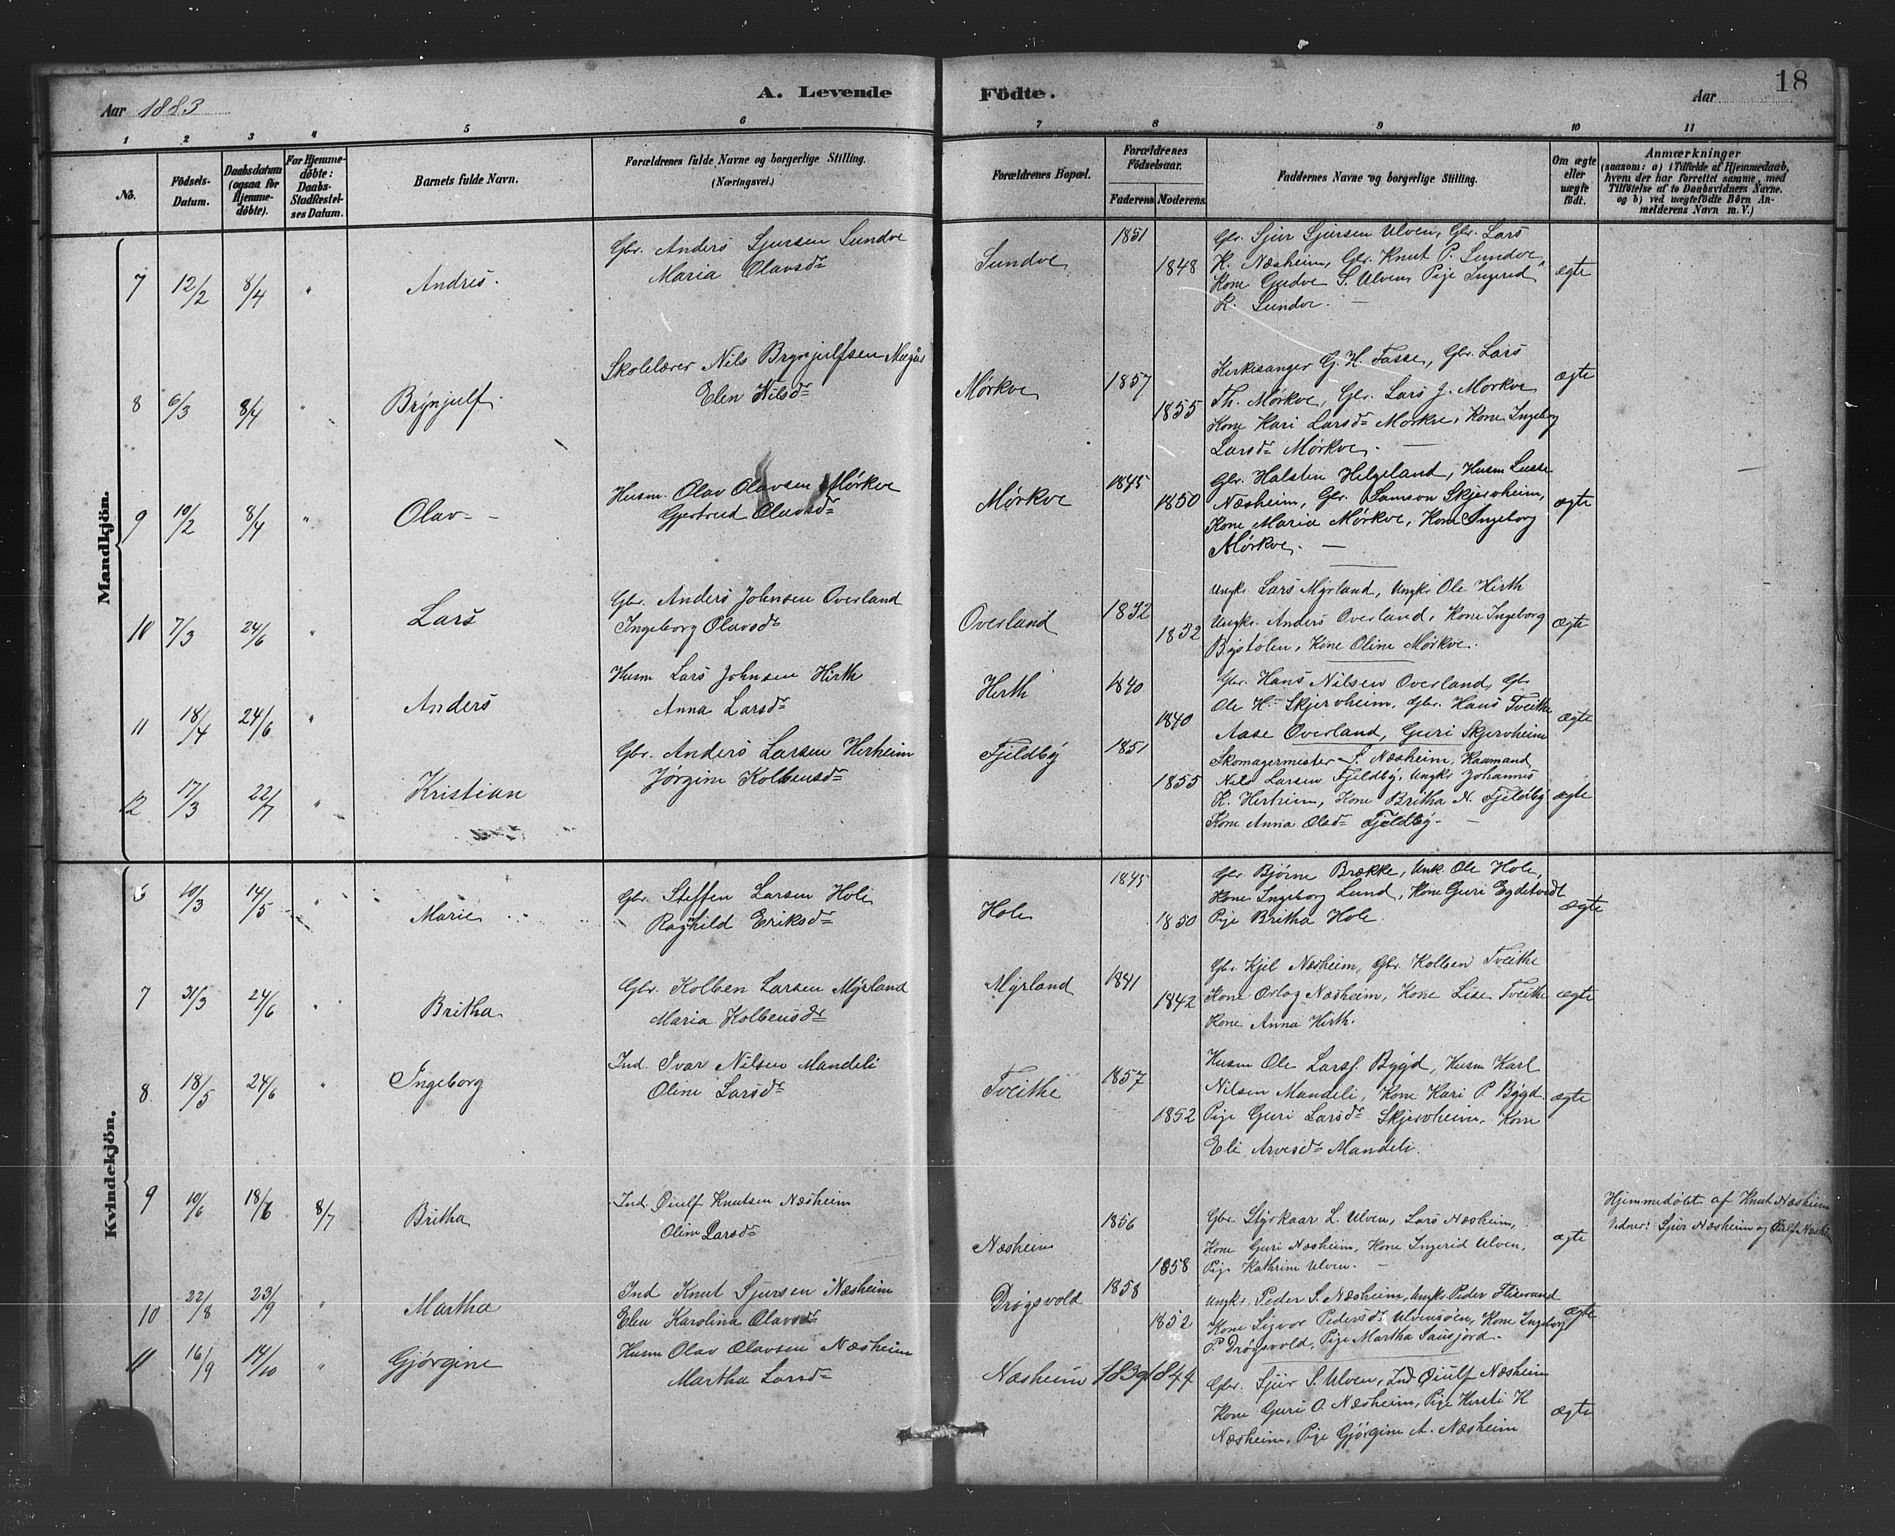 Aar 1883
A. Levende Födte.
Aar
18
1 2 3 4 5 6 7 8 9 10 11
No.
Födsels-Datum.
Daabsdatum (ogsaa for Hjemmedöbte).
For Hjemmedöbte: Daabs-Stadfæstelses Datum.
Barnets fulde Navn.
Forældrenes fulde Navne og borgerlige Stilling. (Næringsvei.)
Forældrenes Bopæl.
Forældrenes Födselsaar.
Faderens Moderens
Faddernes Navne og borgerlige Stilling.
Om ægte eller uægte födt.
Anmærkninger
(saasom: a) i Tilfælde af Hjemmedaab, hvem der har forrettet samme, med Tilföielse af to Daabsvidners Navne. og b) ved uægtefödte Börn Anmelderens Navn m. V.)
Mandkjön.
7 12/2 8/4 " Andres.
Gbr. Anders Sjursen Sundve
Maria Olavsdr
Sundve 1851 1848
Gbr. Sjur Sjursen Ulven, Gbr. Lars
K. Næsheim, Gbr. Knut P. Sundve,
Kone Gudve S. Ulven, Pige Ingerid
K. Sundve.
ægte
8 6/3 8/4 " Brynjulf.
Skolelærer Nils Brynjulfsen
Elen Nilsdr
Mørkve 1857 1855
Kirkesanger G. H. Fasse, Gbr. Lars
Th. Mørkve, Gbr. Lars J. Mørkve,
Kone Kari Larsdr Mørkve, Kone Ingeborg
Larsdr Mørkve.
ægte
9 10/2 8/4 " Olav
Husm. Olav Olavsen Mørkve
Gjertrud Olavsdr
Mørkve 1845 1850
Gbr. Halsten Helgeland, Husm Lasse
Næsheim, Gbr. Samson Skjervheim,
Kone Maria Mørkve, Kone Ingeborg
Mørkve.
ægte
10 7/3 24/6 " Lars
Gbr. Anders Johnsen Overland
Ingeborg Olavsdr
Overland 1832 1832
Ungkr. Lars Myrland, Ungkr. Ole Hirth
Ungkr. Anders Overland, Kone Ingeborg
Bystølen, Kone Oline Mørkve.
ægte
11 18/4 24/6 " Anders
Husm Lars Johnsen Hirth
Anna Larsdr
Hirth 1840 1840
Gbr. Hans Nilsen Overland, Gbr
Ole H. Skjervheim, Gbr. Hans Tveithe
Aase Overland, Guri Skjervheim
ægte
12 17/3 22/7 " Kristian
Gbr. Anders Larsen Herheim
Jørgine Kolbensdr
Fjeldby 1851 1855
Skomagermester S. Næsheim, Kaarmand
Nils Larsen Fjeldby, Ungkr Johannis
K. Herheim, Kone Britha N. Fjeldby
Kone Anna Olsdr Fjeldby.
ægte
Kvindekjön.
6 10/3 14/5 " Marie
Gbr. Steffen Larsen Hole
Raghild Eriksdr
Hole 1845 1850
Gbr. Bjørne Brække, Unk. Ole Hole,
Kone Ingeborg Lund, Kone Guri Egdetvedt
Pige Britha Hole.
ægte
7 31/3 24/6 " Britha
Gbr. Kolben Larsen Myrland
Maria Kolbensdr
Myrland 1841 1842
Gbr. Kjel Næsheim, Gbr. Kolben Tveithe
Kone Orlog Næsheim, Kone Lise Tveithe
Kone Anna Hirth.
ægte
8 18/5 24/6 " Ingeborg
Ind. Ivar Nilsen Mandeli
Oline Larsdr
Tveithe 1857 1852
Husm Ole Larsf Bygd, Husm Karl
Nilsen Mandeli, Kone Kari P. Bygd.
Pige Guri Larsdr Skjervheim, Kone
Eli Arvesdr Mandeli.
ægte
9 10/6 18/7 8/7 Britha
Ind. Øiulf Knutsen Næsheim
Oline Larsdr
Næsheim 1856 1858
Gbr. Styrkaar L. Ulven, Lars Næsheim,
Kone Guri Næsheim, Kone Ingerid Ulven,
Pige Kathrine Ulven.
ægte
Hjemmedøbt af Knut Næsheim
Vidner: Sjur Næsheim og Øiulf Næsheim
10 22/8 23/9 " Martha
Ind Knut Sjursen Næsheim
Elen Karolina Olavsdr
Drøgsvold 1858 1852
Ungkr. Peder S. Næsheim, Ungkr. Peder
Kone Sigvor Pedersdr Ulvensøen, Kone Ingeborg
P. Drøgsvold, Pige Martha Sausjord.
ægte
11 16/9 14/10 " Gjørgine
Husm Olav Olavsen Næsheim
Martha Larsdr
Næsheim 1839 1844
Gbr. Sjur S. Ulven, Ind Øiulf Næsheim
Kone Guri O. Næsheim, Pige Kersti K
Næsheim, Pige Gjørgine A. Næsheim
ægte